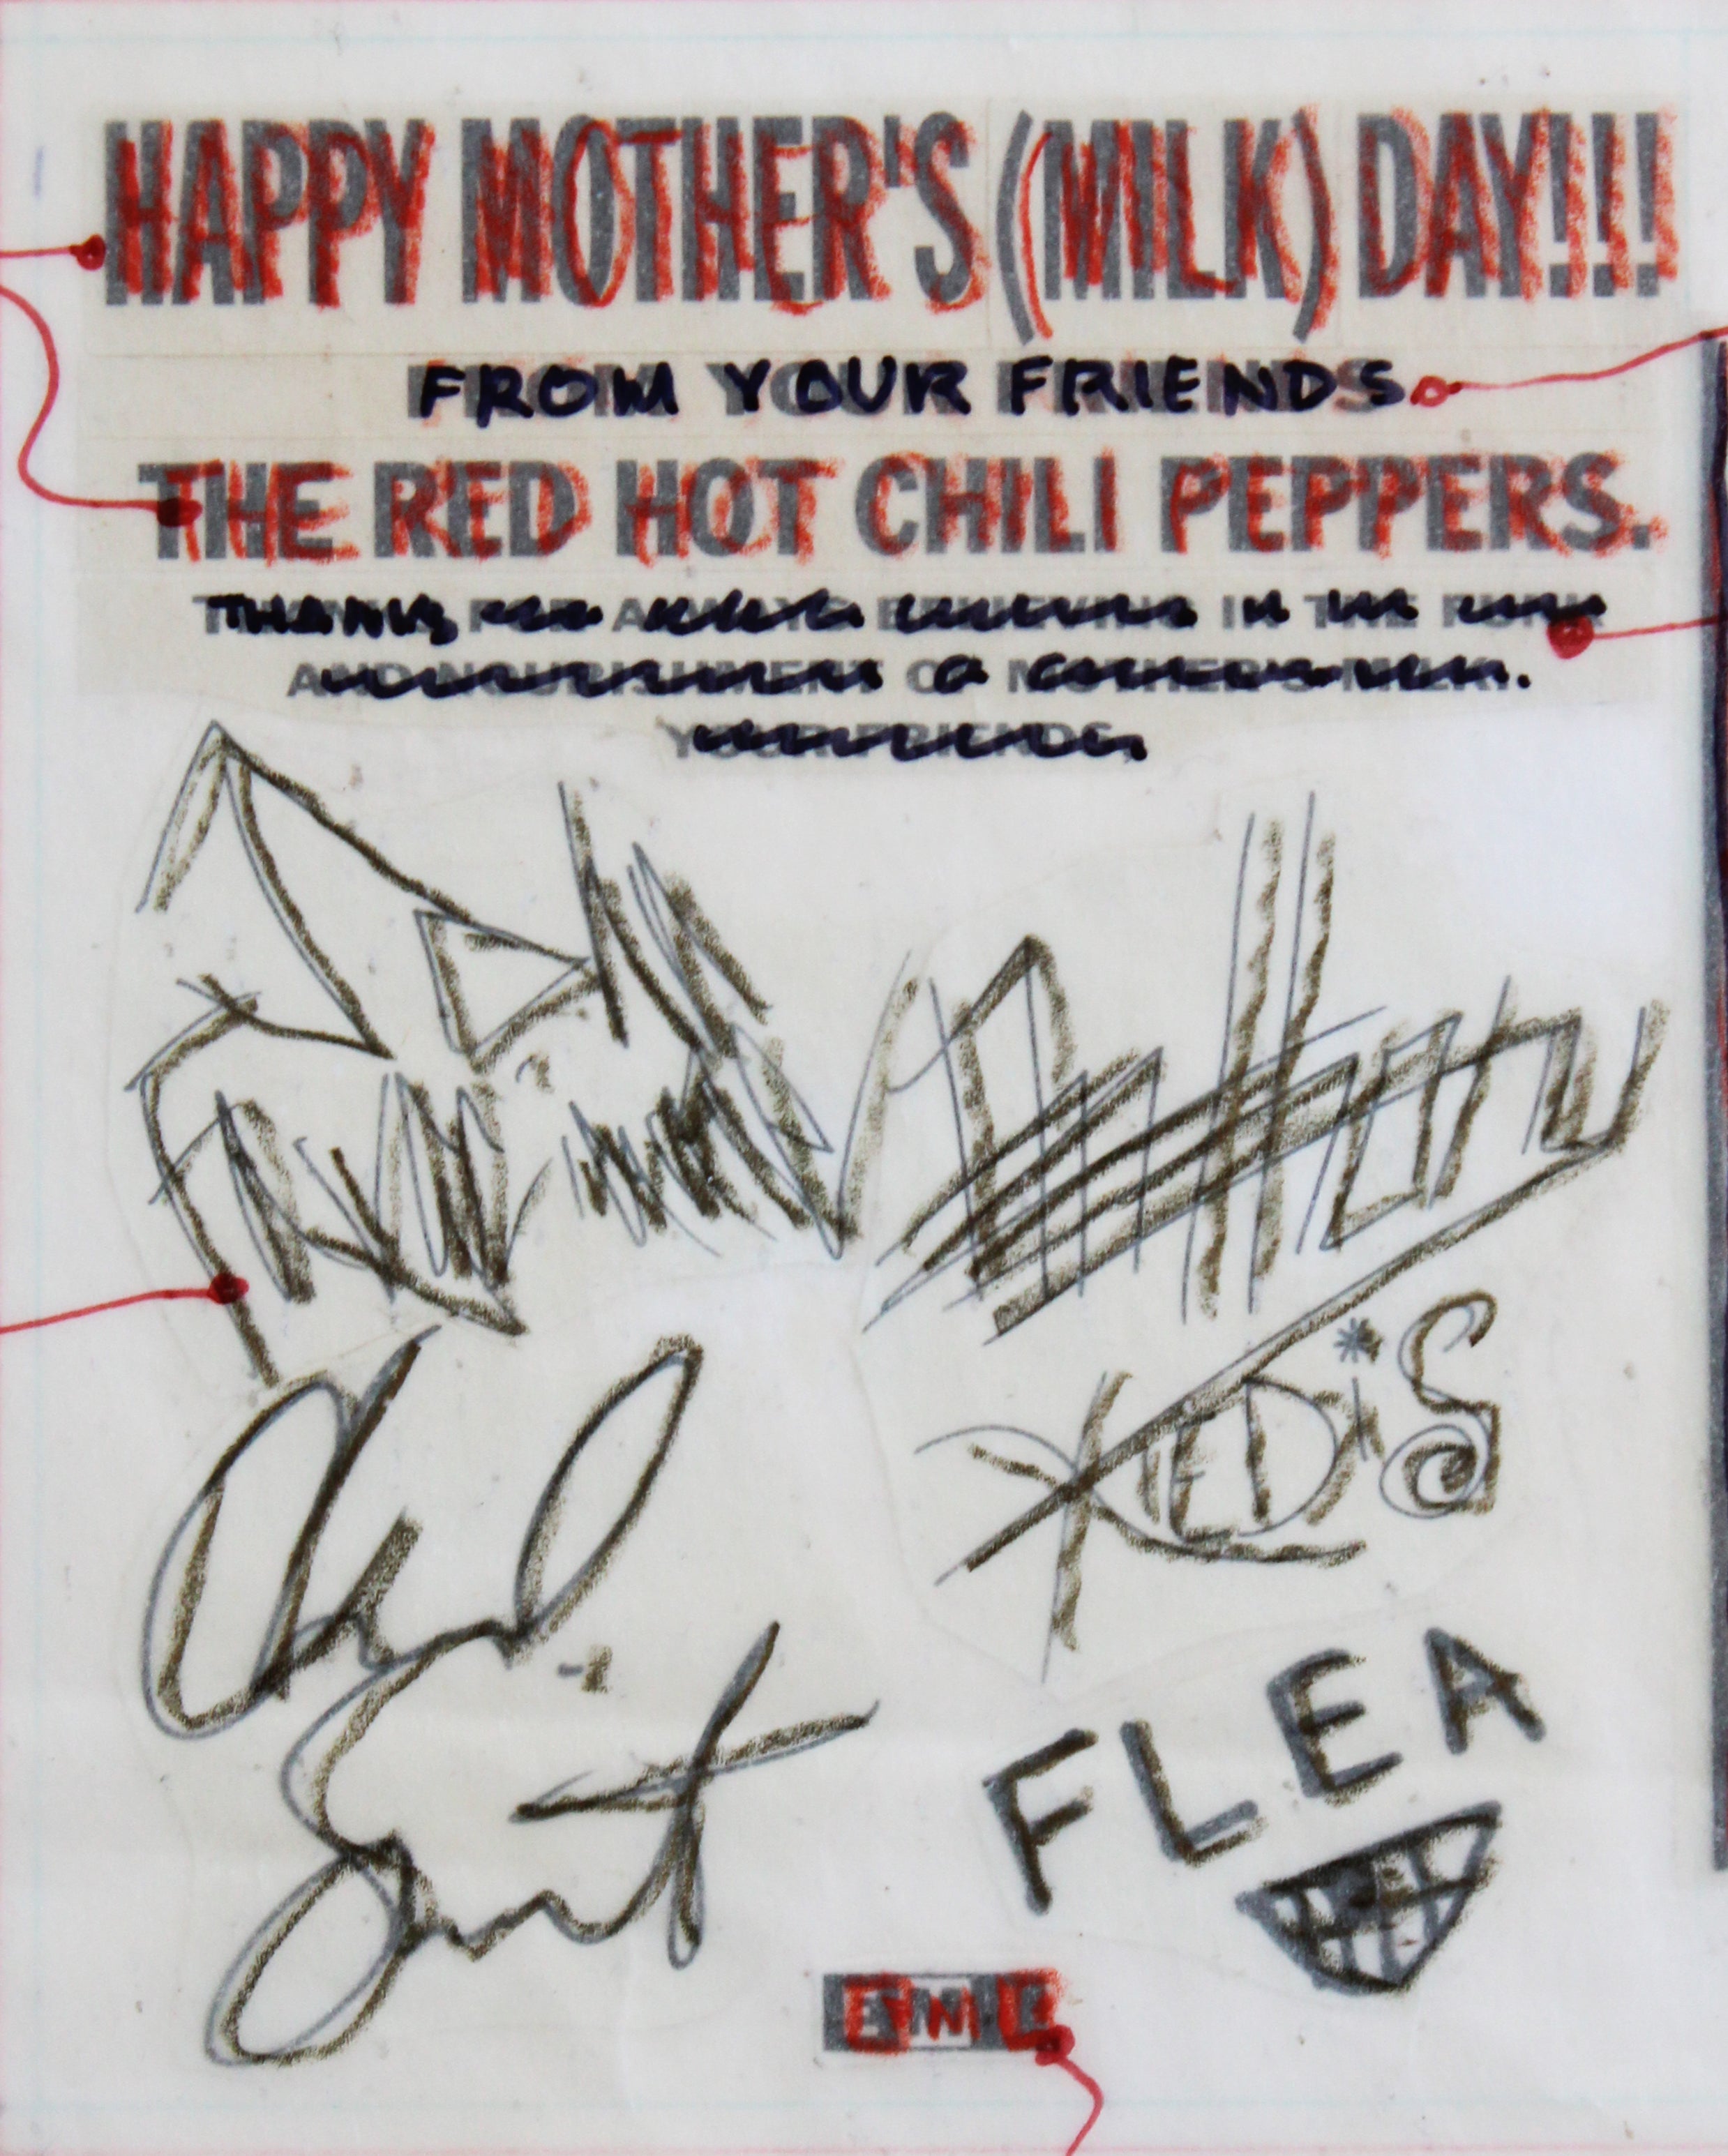 HAPPY MOTHER'S (MILK) DAY!!!
FROM YOUR FRIENDS
THE RED HOT CHILI PEPPERS.
THANKS FOR ALWAYS BELIEVING IN THE FUNK
AND NOURISHMENT OF MOTHER'S MILK.
YOUR FRIENDS,
John
Anthony
Frusciante
KiEDiS
Chad
Smith
FLEA
EMI